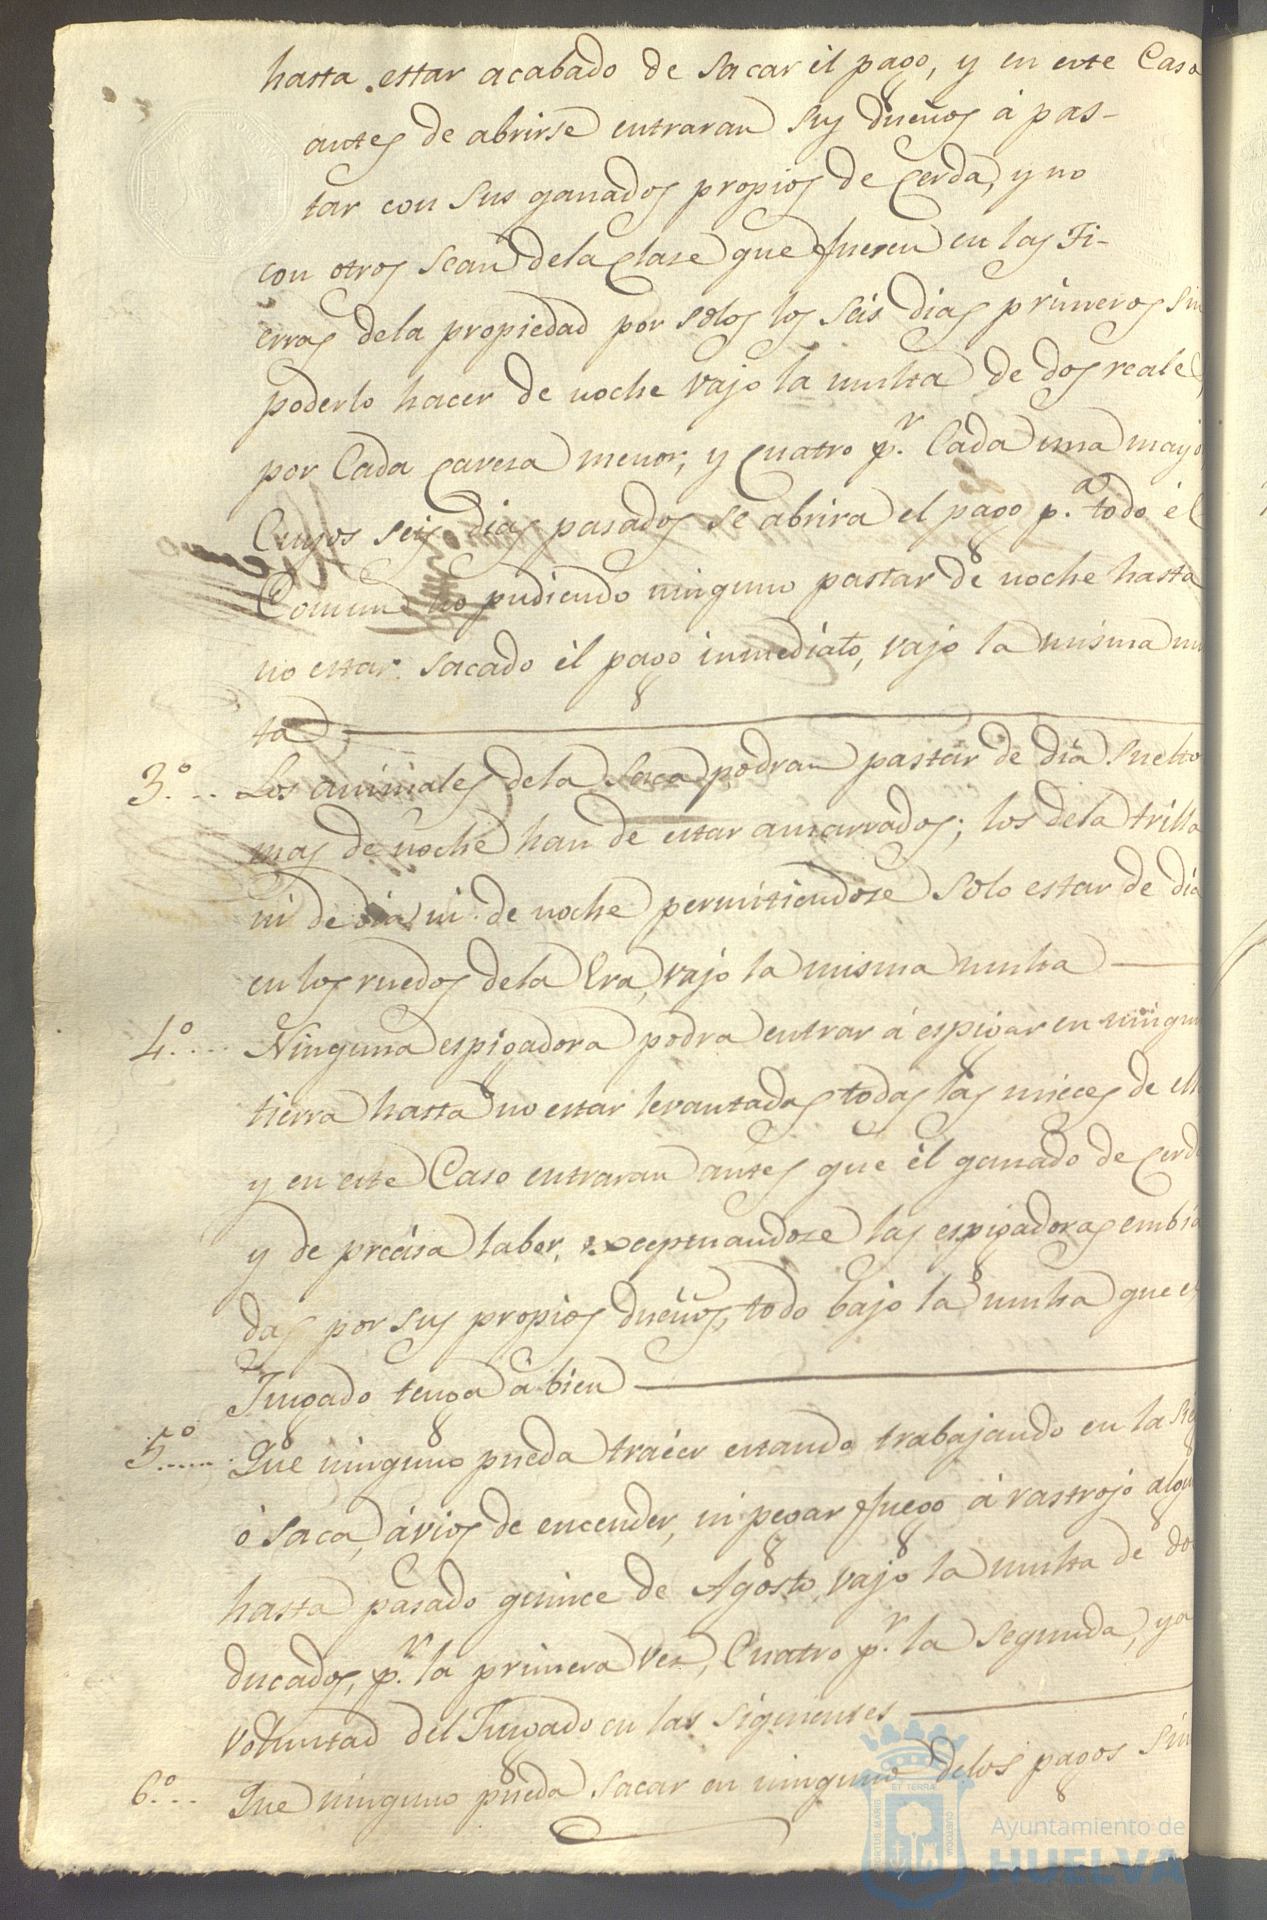 hasta estar acabado de sacar él pago, y en este Caso
antes de abrirse entraran sus dueños á pas-
tar con sus ganados propios de Cerda, y no
con otros sean dela Clase que fueren en las Ti-
erras dela propiedad por solos los seis dias primeros sin
poderlo hacer de noche vajo la multa de dos reales
por Cada Caveza menor, y Cuatro p.r Cada una mayo
Cuyos seis dias pasados se abrira el pago p.a todo él
Comun no pudiendo ninguno pastar de noche hasta
no estar sacado él pago inmediato, vajo la misma mu
ta
3.º Los animales dela Saca podran pastar de dia suelto
mas de noche han de estar amarrados; los dela trilla
ni de dia ni de noche permitiendose solo estar de dia
en los ruedos dela Era, vajo la misma multa
4.º Ninguna espigadora podra entrar á espigar en ningun
tierra hasta no estar levantadas todas las mieces de ell
y en este Caso entraran antes que él ganado de Cerda
y de precisa labor, exceptuandose las espigadoras embia
das por sus propios dueños, todo bajo la multa que el
Juzgado tenga á bien
5.º Que ninguno pueda tráeer estando trabajando en la Se
ó saca, ávios de encender, ni pegar fuego á rastrojo algu
hasta pasado quince de Agosto, vajo la multa de do
ducados, p.r la primera vez, Cuatro p.r la Segunda, y a
voluntad del Juzgado en las siguientes
6.º Que ninguno pueda sacar en ninguno delos pagos sin
Ayuntamiento de
HUELVA